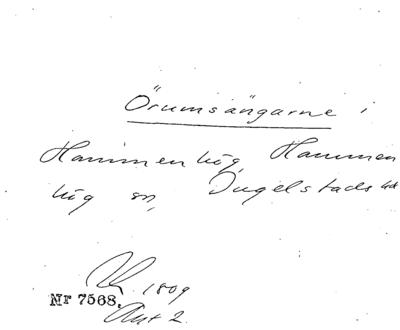 Örumsängarne i
Hammenhög, Hammen
hög sn, Ingelstads hd
1809
Nr 7568.
Akt 2.